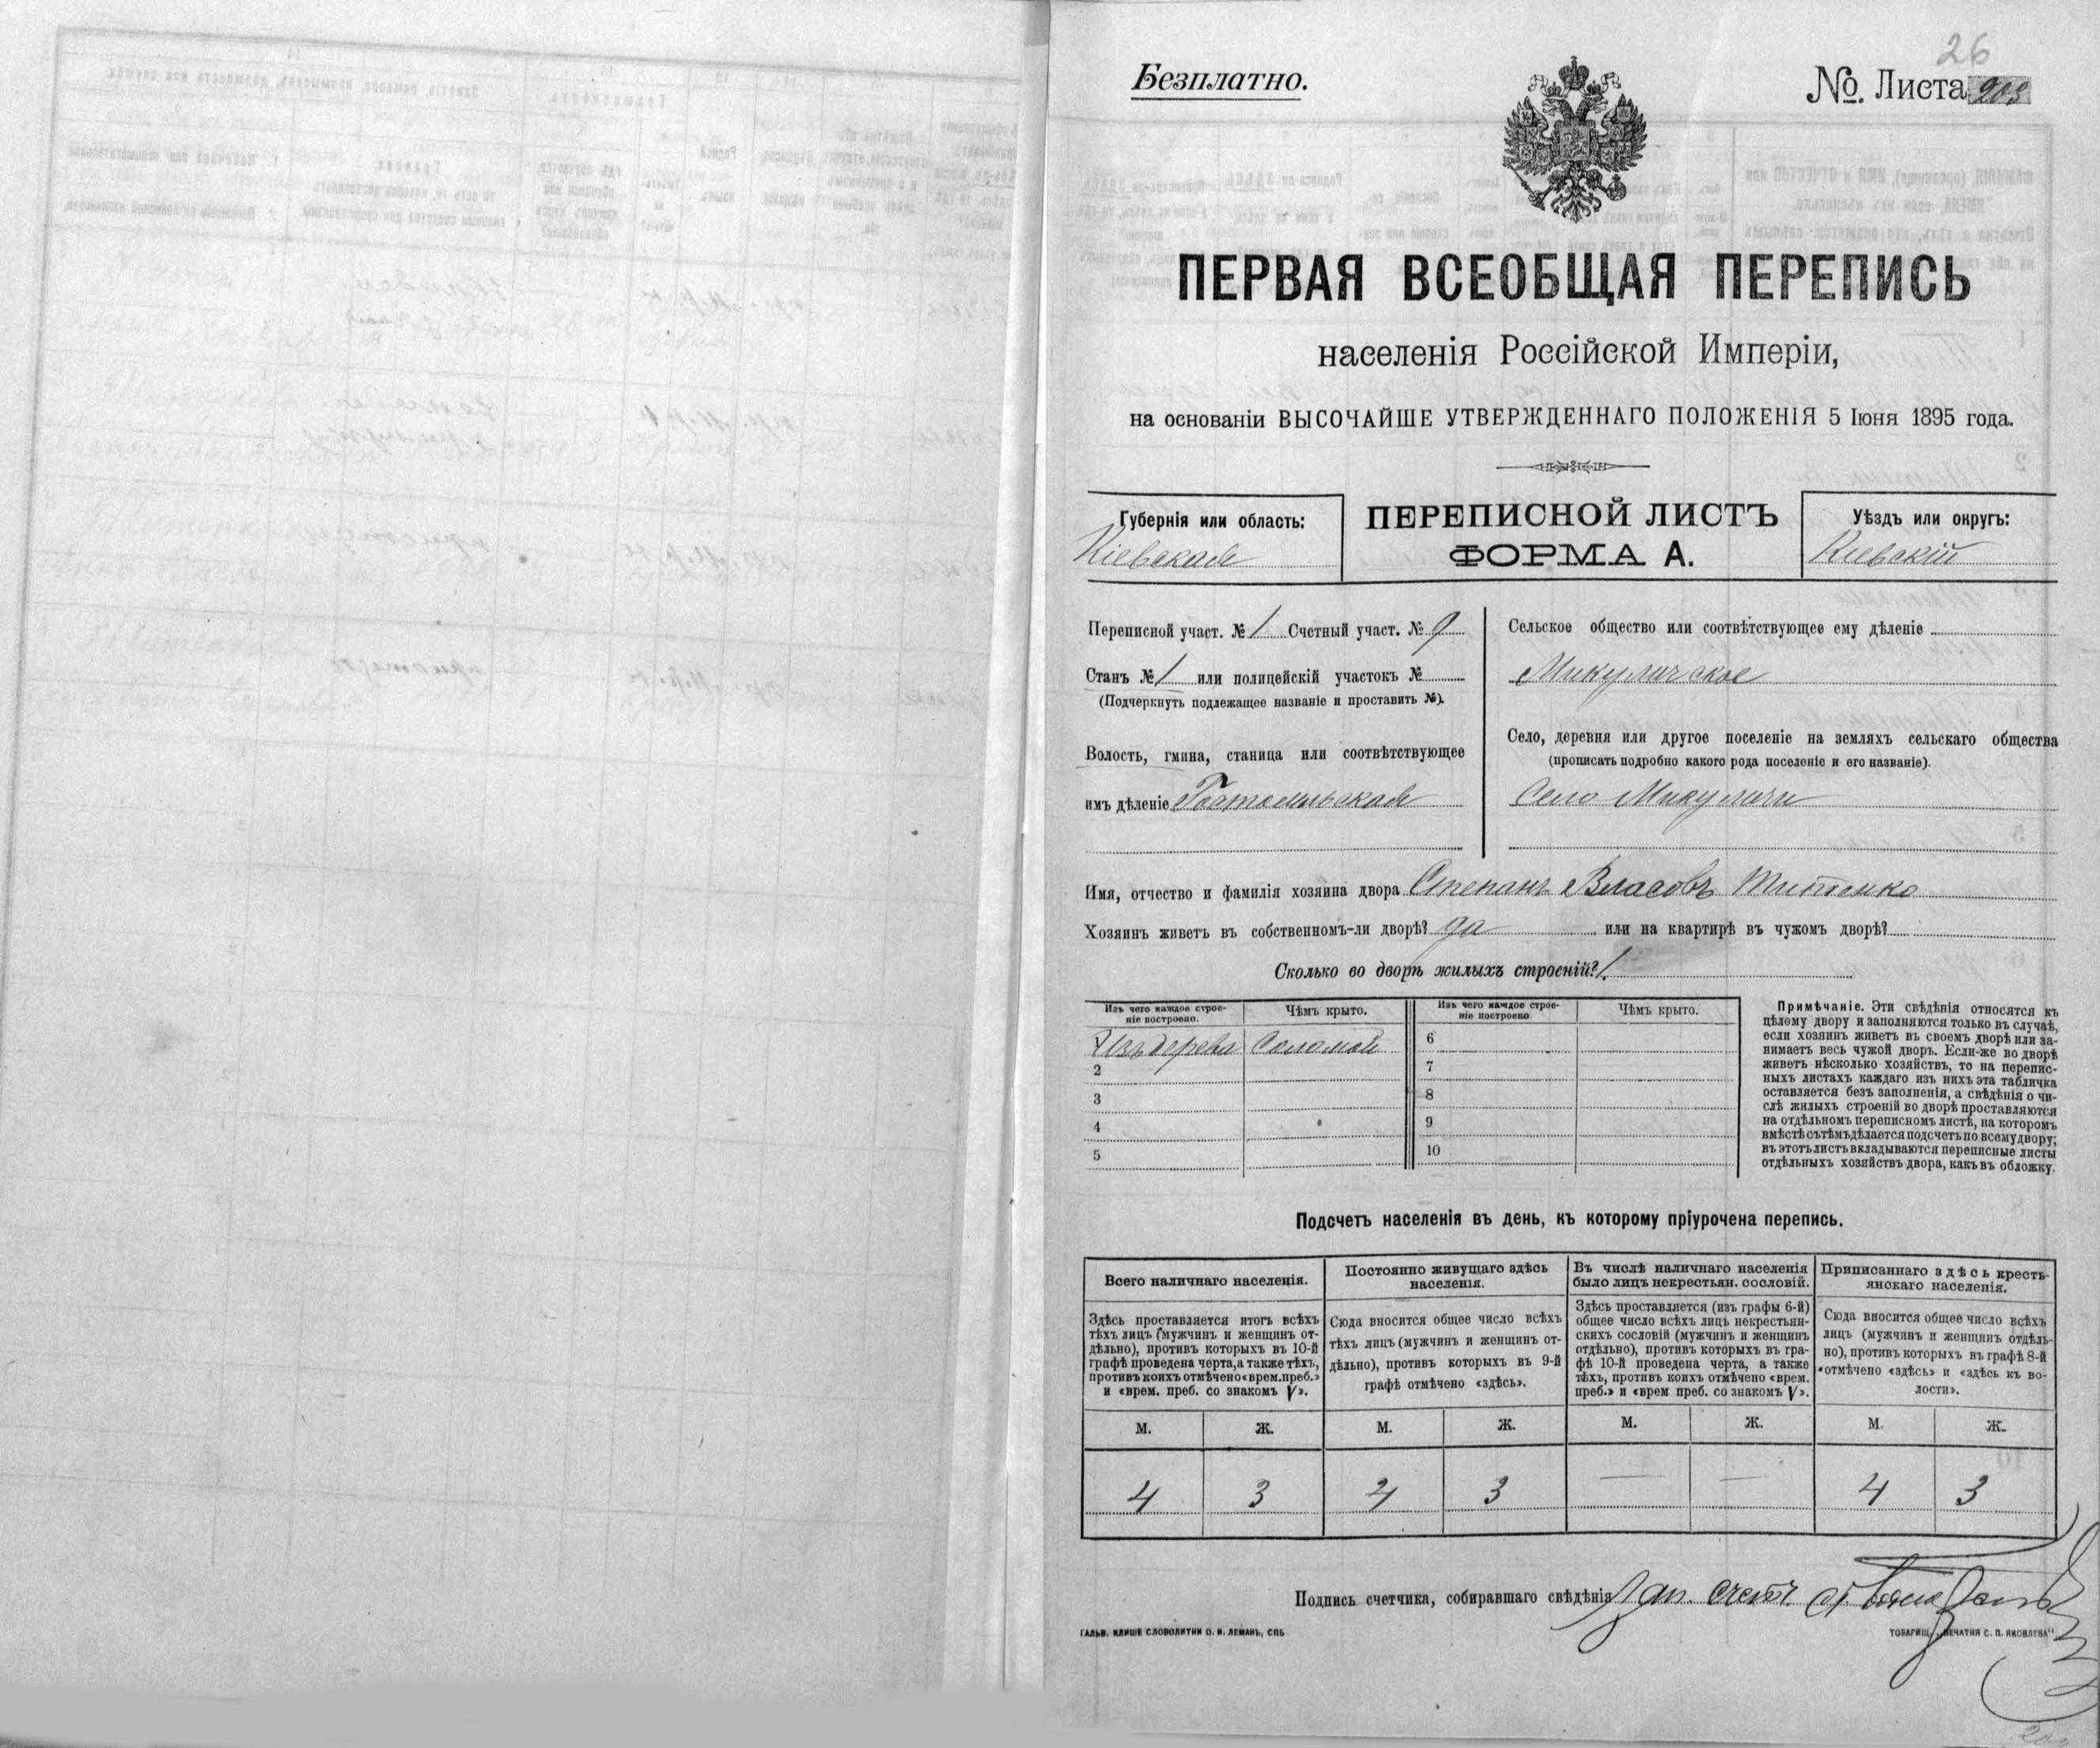 26
Безплатно.
№. Листа 203
ПЕРВАЯ ВСЕОБЩАЯ ПЕРЕПИСЬ
населенія Россійской Имперіи,
на основаніи ВЫСОЧАЙШЕ УТВЕРЖДЕННАГО ПОЛОЖЕНІЯ 5 Іюня 1895 года.
Губернія или область:
Кіевская
ПЕРЕПИСНОЙ ЛИСТЪ
ФОРМА А.
Уѣздъ или округъ:
Кіевскій
Переписной участ. № 1 Счетный участ. № 9
Станъ № 1 или полицейскій участокъ №
(Подчеркнуть подлежащее названіе и проставить №).
Волость, гмина, станица или соотвѣтствующее
имъ дѣленіе Гостомльская
Сельское общество или соотвѣтствующее ему дѣленіе
Микуличское
Село, деревня или другое поселеніе на земляхъ сельскаго общества
(прописать подробно какого рода поселеніе и его названіе).
Село Микуличи
Имя, отчество и фамилія хозяина двора Степанъ Власовъ Титенко
Хозяинъ живетъ въ собственномъ-ли дворѣ? да или на квартирѣ въ чужомъ дворѣ?
Сколько во дворѣ жилыхъ строеній? 1.
Изъ чего каждое строе-
ніе построено.
Чѣмъ крыто.
Изъ чего каждое строе-
ніе построено
Чѣмъ крыто.
1 Изъ дерева Соломой
2
3
4
5
6
7
8
9
10
Примѣчаніе. Эти свѣдѣнія относятся къ
цѣлому двору и заполняются только въ случаѣ,
если хозяинъ живетъ въ своемъ дворѣ или за-
нимаетъ весь чужой дворъ. Если-же во дворѣ
живетъ нѣсколько хозяйствъ, то на перепис-
ныхъ листахъ каждаго изъ нихъ эта табличка
оставляется безъ заполненія, а свѣдѣнія о чи-
слѣ жилыхъ строеній во дворѣ проставляются
на отдѣльномъ переписномъ листѣ, на которомъ
вмѣстѣ съ тѣмъ дѣлается подсчетъ по всему двору;
въ этотъ листъ вкладываются переписные листы
отдѣльныхъ хозяйствъ двора, какъ въ обложку.
Подсчетъ населенія въ день, къ которому пріурочена перепись.
Всего наличнаго населенія.
Здѣсь проставляется итогъ всѣхъ
тѣхъ лицъ (мужчинъ и женщинъ от-
дѣльно), противъ которыхъ въ 10-й
графѣ проведена черта, а также тѣхъ,
противъ коихъ отмѣчено «врем. преб.»
и «врем. преб. со знакомъ V».
Постоянно живущаго здѣсь
населенія.
Сюда вносится общее число всѣхъ
тѣхъ лицъ (мужчинъ и женщинъ от-
дѣльно), противъ которыхъ въ 9-й
графѣ отмѣчено «здѣсь».
Въ числѣ наличнаго населенія
было лицъ некрестьян. сословій.
Здѣсь проставляется (изъ графы 6-й)
общее число всѣхъ лицъ некрестьян-
скихъ сословій (мужчинъ и женщинъ
отдѣльно), противъ которыхъ въ гра-
фѣ 10-й проведена черта, а также
тѣхъ, противъ коихъ отмѣчено «врем.
преб.» и «врем преб. со знакомъ V».
Приписаннаго здѣсь кресть-
янскаго населенія.
Сюда вносится общее число всѣхъ
лицъ (мужчинъ и женщинъ отдѣль-
но), противъ которыхъ въ графѣ 8-й
отмѣчено «здѣсь» и «здѣсь къ во-
лости».
М. Ж. М. Ж. М. Ж. М. Ж.
4 3 4 3 — — 4 3
Подпись счетчика, собиравшаго свѣдѣнія счетч.
ГАЛЬВ. КЛИШЕ СЛОВОЛИТНИ О. И. ЛЕМАНЪ, СПБ
ТОВАРИЩ. „ПЕЧАТНЯ С. П. ЯКОВЛЕВА“